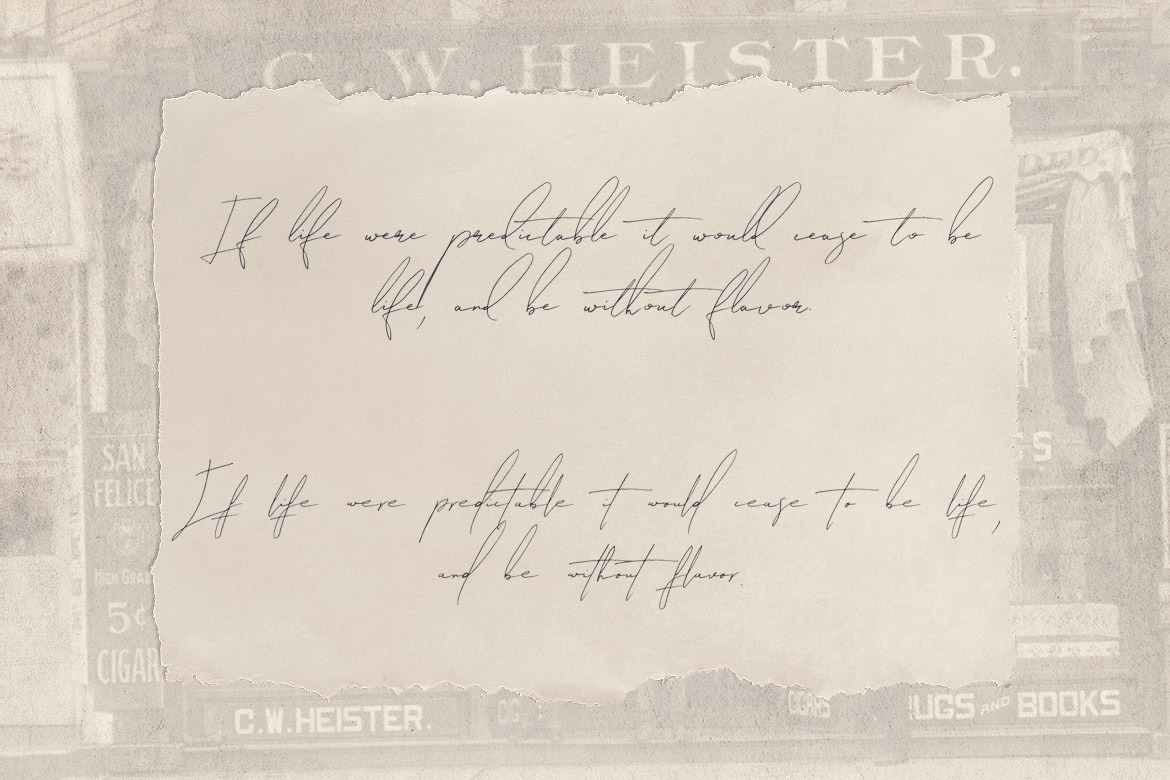 C.W. HEISTER.
If life were predictable it would cease to be
life, and be without flavor.
If life were predictable it would cease to be life,
and be without flavor.
SAN
FELICE
HIGH GRADE
5¢
CIGAR
C.W.HEISTER.
CIGARS
UGS AND BOOKS